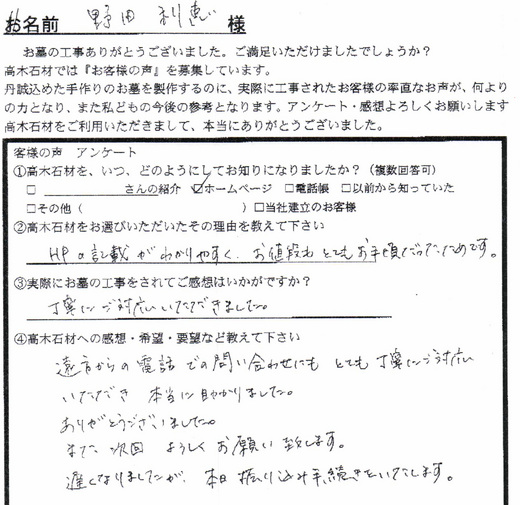 お名前 野田 利恵 様
お墓の工事ありがとうございました。ご満足いただけましたでしょうか?
高木石材では『お客様の声』を募集しています。
丹誠込めた手作りのお墓を製作するのに、実際に工事されたお客様の率直なお声が、何より
の力となり、また私どもの今後の参考となります。アンケート・感想よろしくお願いします
高木石材をご利用いただきまして、本当にありがとうございました。
客様の声 アンケート
①高木石材を、いつ、どのようにしてお知りになりましたか?(複数回答可)
□ さんの紹介 ☑ホームページ □電話帳 □以前から知っていた
□その他( )□当社建立のお客様
②高木石材をお選びいただいたその理由を教えて下さい
HPの記載がわかりやすく、お値段もとてもお手頃だったためです。
③実際にお墓の工事をされてご感想はいかがですか?
丁寧にご対応いただきました。
④高木石材への感想・希望・要望など教えて下さい
遠方からの電話での問い合わせにもとても丁寧にご対応
いただき 本当に助かりました。
ありがとうございました。
また次回 よろしくお願い致します。
遅くなりましたが、本日振り込み手続きをいたします。